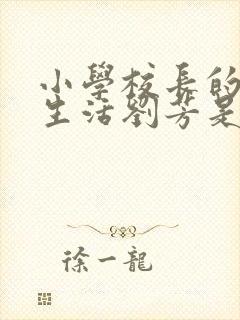 小學校長的
生活劉芳是
徐一龍